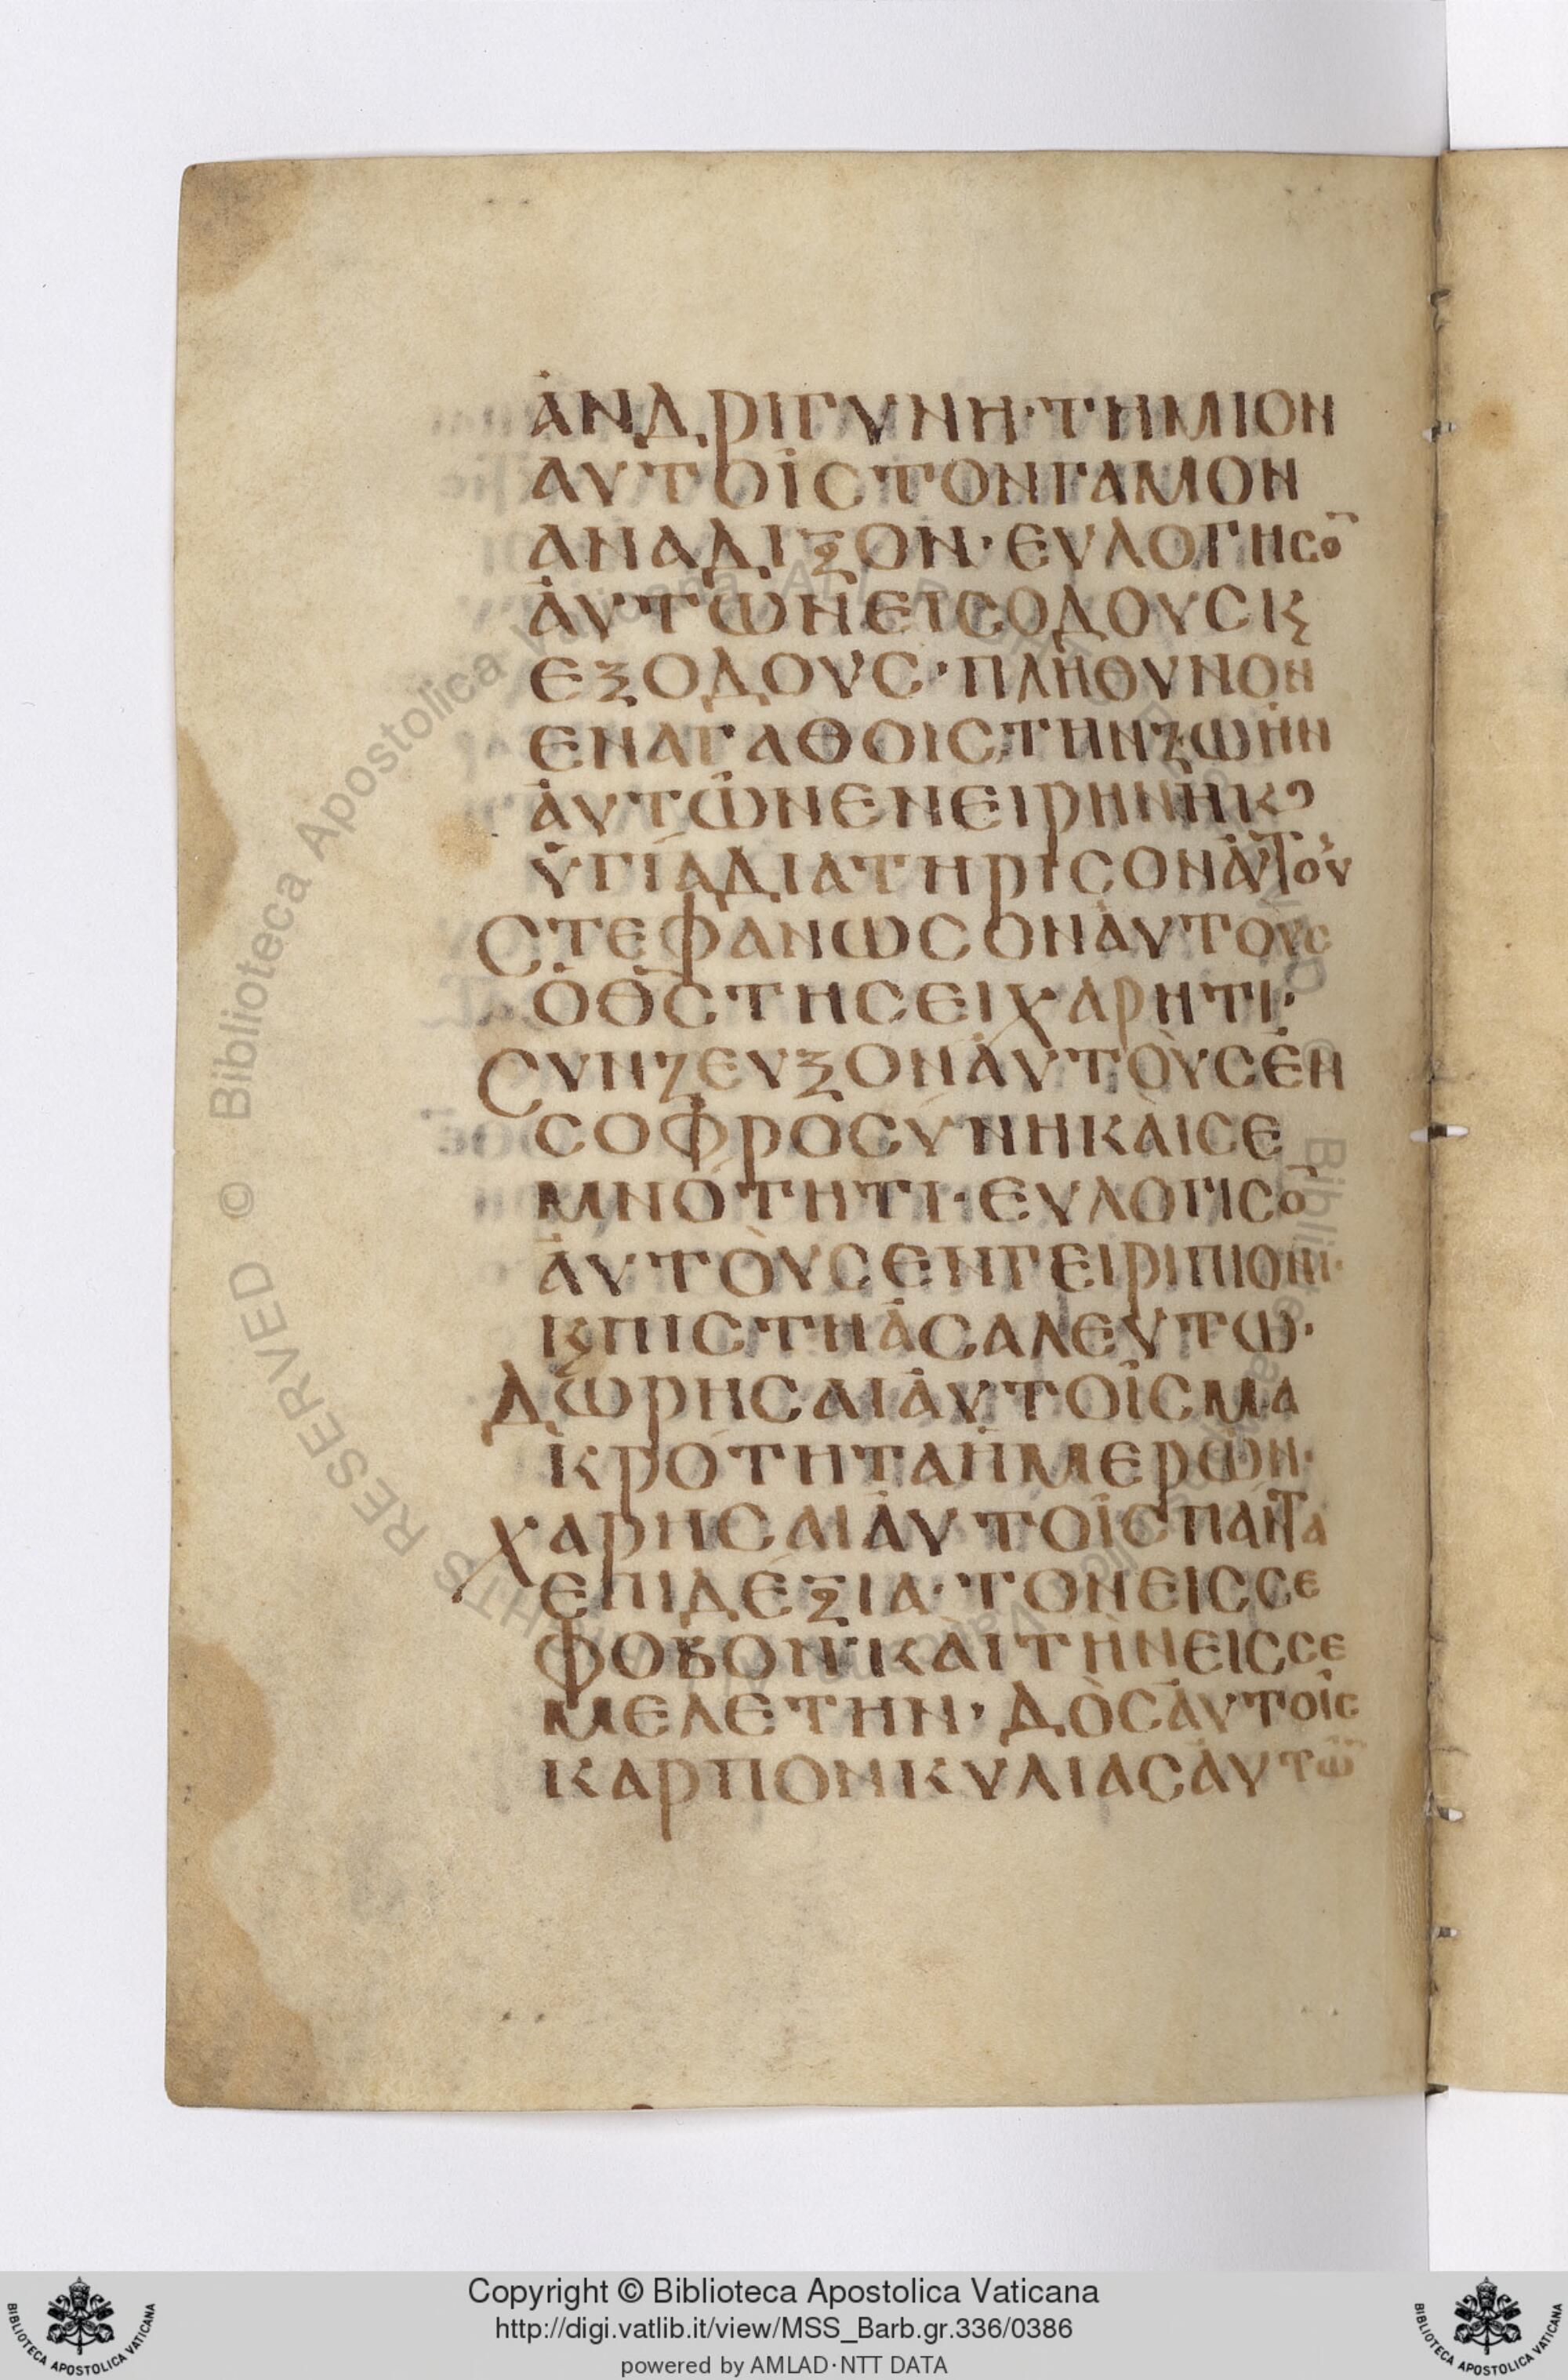 ἀΝΔΡΙΓΥΝΗ·ΤΗΜΙΟΝ
ΑΥΤΟΙCΤΟΝΓΑΜΟΝ
ΑΝΑΔΙΞΟΝ·ΕΥΛΟΓΗCΟ̅
ἀΥΤΩΝΕΙCΟΔΟΥCΚϛ
ΕΞΟΔΟΥC·ΠΛΗΘΥΝΟΝ
ΕΝΑΓΑΘΟΙCΤΗΝΖΩΗΝ
ἀΥΤΩΝΕΝΕΙΡΗΝΗΚϽ
ΥΓΙΑΔΙΑΤΗΡΙCΟΝΑΥΤΟΥ
CΤΕΦΑΝΩCΟΝἀΥΤΟΥC
ὁΘ̅C̅ΤΗCΕΙΧΑΡΗΤΙ·
CΥΝΖΕΥΞΟΝἀΥΤΟὺCἐΝ
CΟΦΡΟCΥΝΗΚὰΙCΕ
ΜΝΟΤΗΤΙ·ΕΥΛΟΓΙCΟ̅
ἀΥΤΟὺCΕΝΓΕΙΡΙΠΙΟΝΙ·
ΚϛΠΙCΤΗἀCΑΛΕΥΤΩ·
ΔΩΡΗCΑΙἀΥΤΟΙCΜΑ
ΚΡΟΤΗΤΑΗΜΕΡΩΝ·
ΧΑΡΗCΑΙἀΥΤΟΙCΠΑΝΤΑ
ΕΠΙΔΕΞΙΑ·ΤΟΝΕΙCCΕ
ΦΟΒΟΝΚΑΙΤΗΝΕΙCCΕ
ΜΕΛΕΤΗΝ·ΔὸCΑΥΤΟΙC
ΚΑΡΠΟΝΚΥΛΙΑCΑΥΤΩ̅
© Biblioteca Apostolica Vaticana
RIGHTS RESERVED
Copyright © Biblioteca Apostolica Vaticana
http://digi.vatlib.it/view/MSS_Barb.gr.336/0386
powered by AMLAD·NTT DATA
BIBLIOTECA APOSTOLICA VATICANA
BIBLIOTECA APOSTOLICA VATICANA